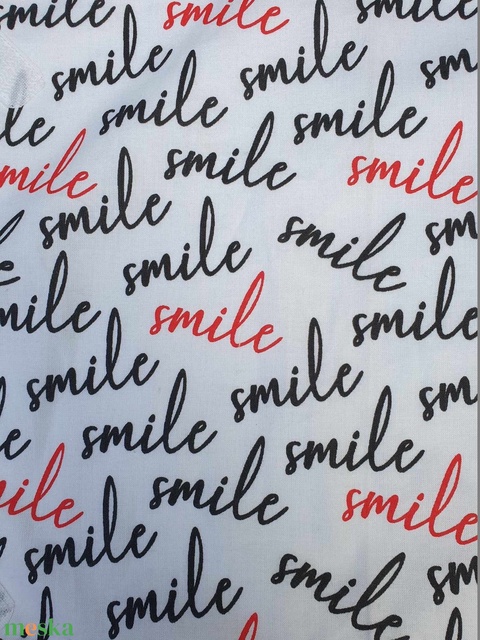 smile smile smile
smile smile sm
le smile smile
mile smile smile
smile smile sm
e smile
mile smile smile
smile smile sm
e smile smile
ile smile smile
smile smile sm
smile
meska